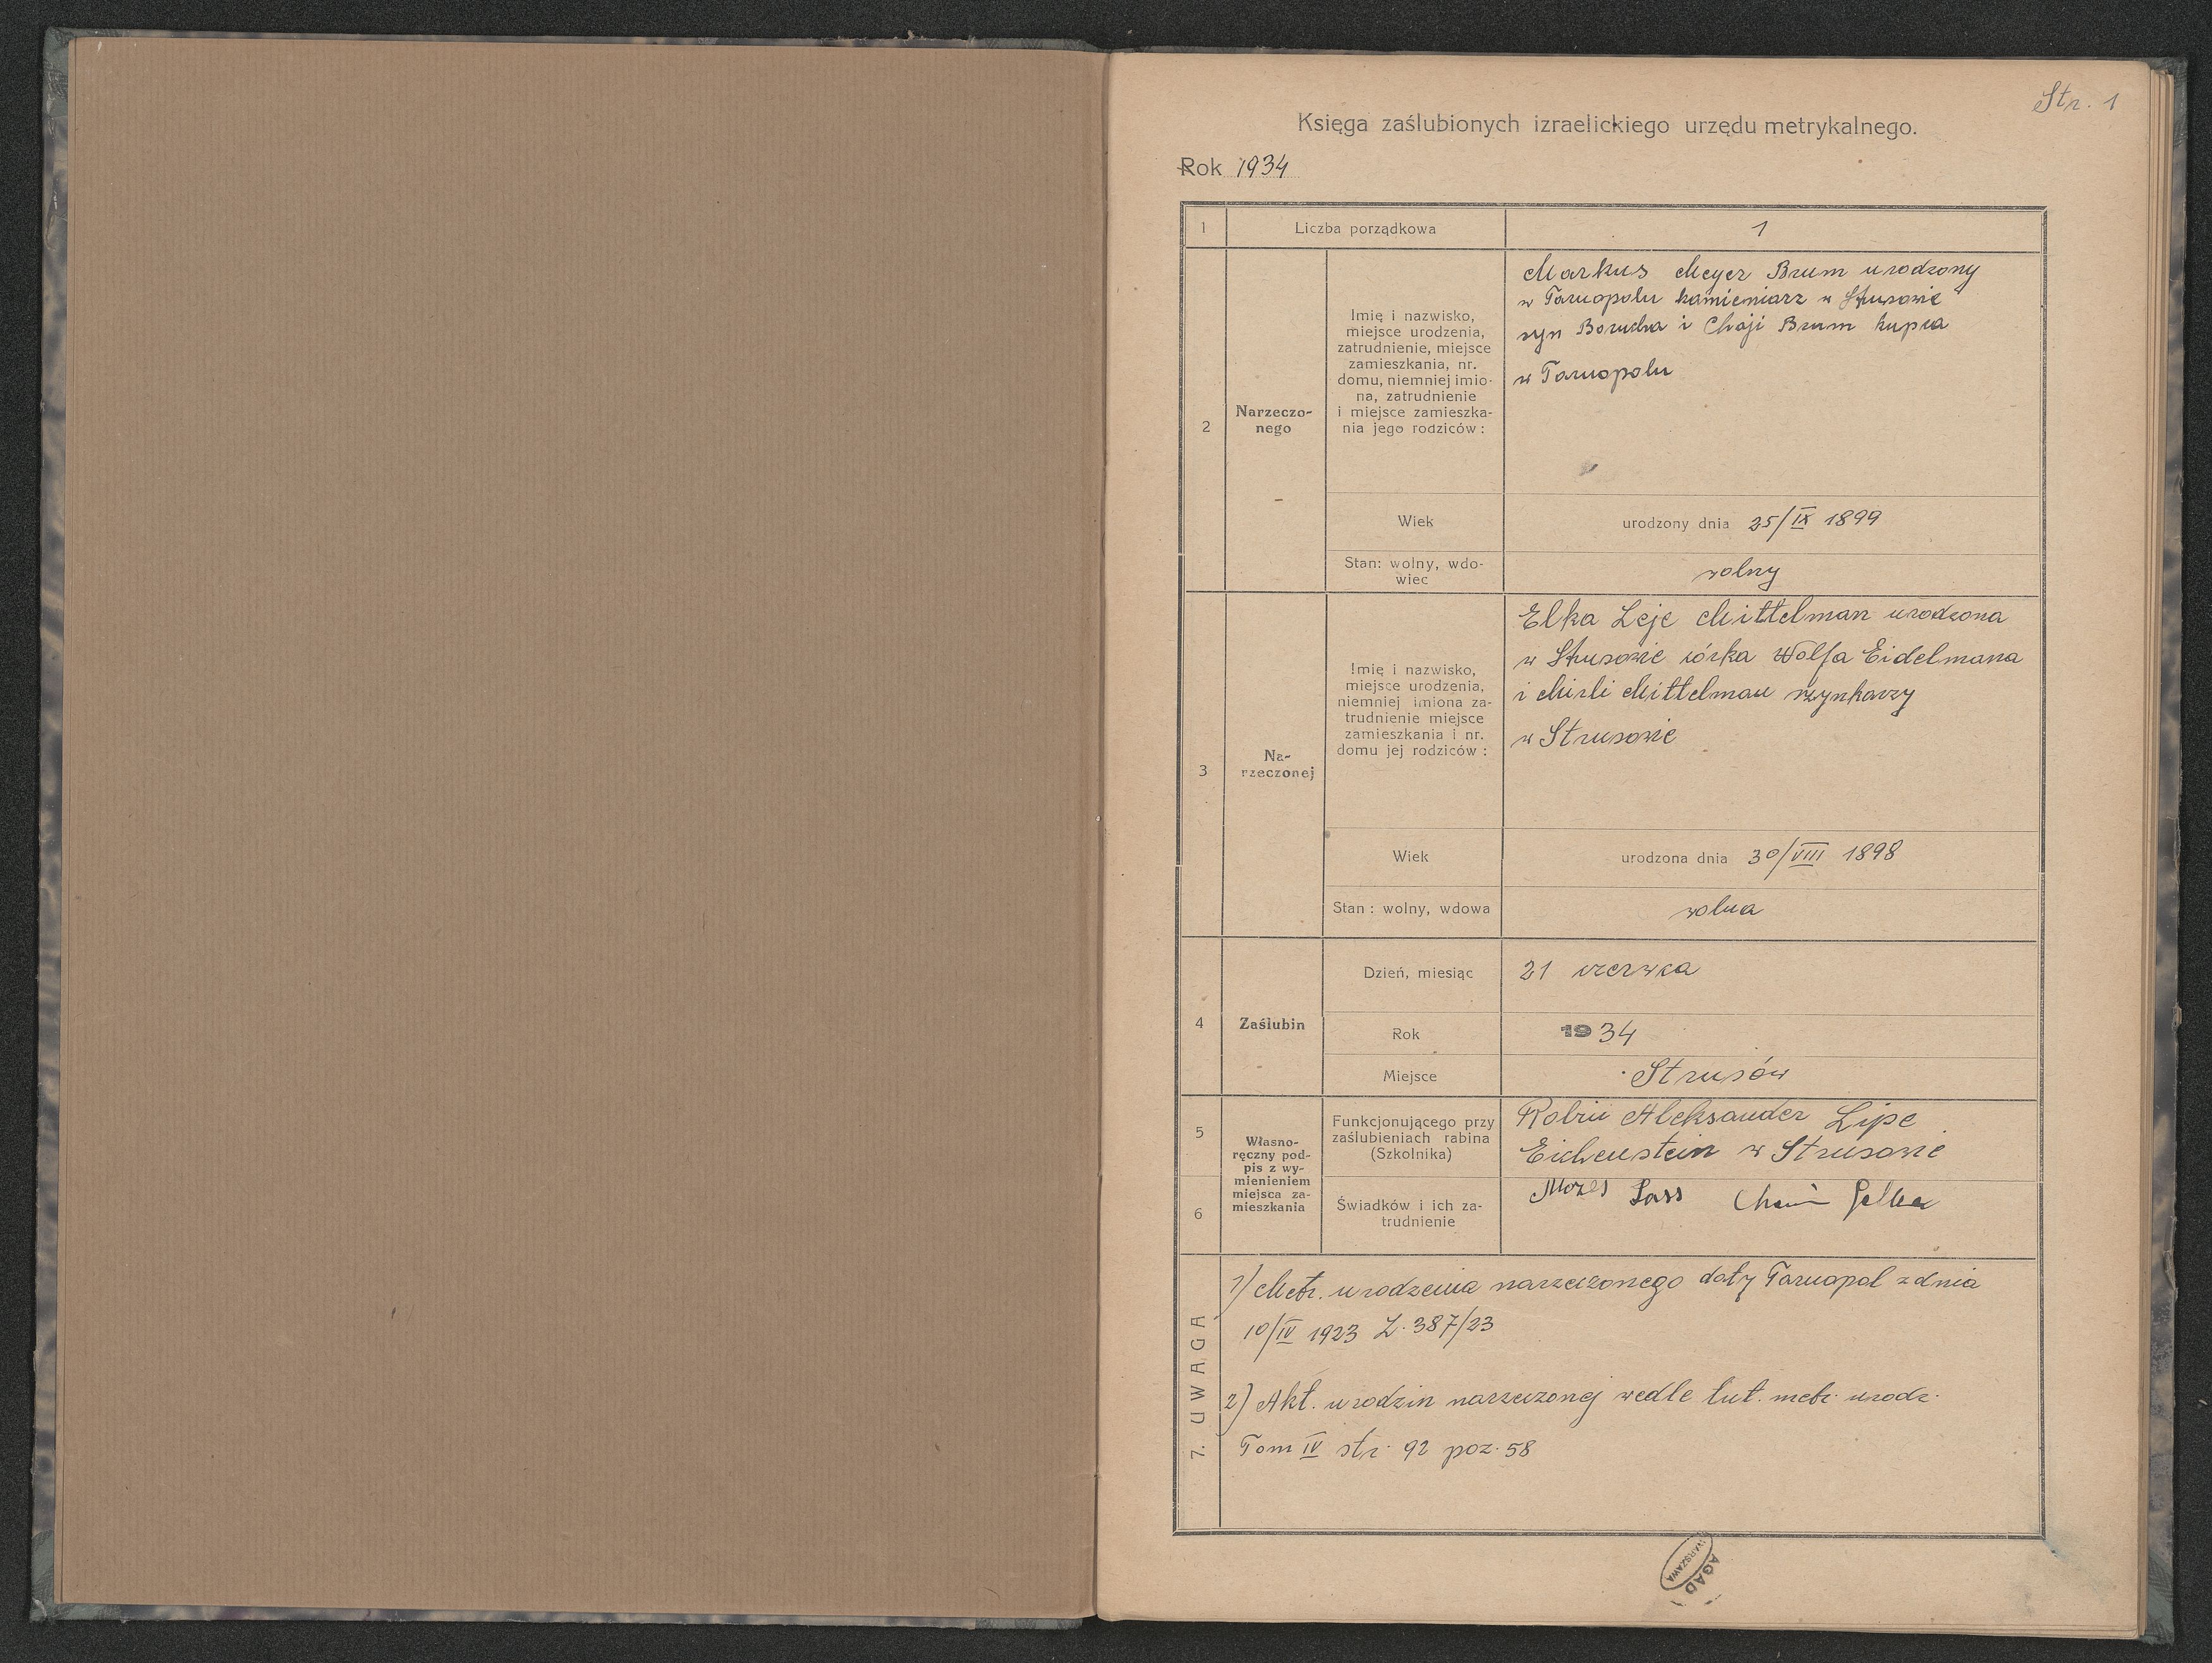 Str. 1
Księga zaślubionych izraelickiego urzędu metrykalnego.
Rok 1934
1
Liczba porządkowa
1
2
Narzeczo-
nego
Imię i nazwisko,
miejsce urodzenia,
zatrudnienie, miejsce
zamieszkania, nr.
domu, niemniej imio-
na, zatrudnienie
i miejsce zamieszka-
nia jego rodziców :
Markus Meyer Brum urodzony
w Tarnopolu kamieniarz w Strusowie
syn Borucha i Chaji Brum kupca
w Tarnopolu
Wiek
urodzony dnia 25/IX 1899
Stan: wolny, wdo-
wiec
wolny
3
Na-
rzeczonej
Imię i nazwisko,
miejsce urodzenia,
niemniej imiona za-
trudnienie miejsce
zamieszkania i nr.
domu jej rodziców :
Elka Leje Mittelman urodzona
w Strusowie córka Wolfa Eidelmana
i Mirli Mittelman szynkarzy
w Strusowie
Wiek
urodzona dnia 30/VIII 1898
Stan : wolny, wdowa
wolna
4
Zaślubin
Dzień, miesiąc
21 czerwca
Rok
1934
Miejsce
Strusów
5
6
Własno-
ręczny pod-
pis z wy-
mienieniem
miejsca za-
mieszkania
Funkcjonującego przy
zaślubieniach rabina
(Szkolnika)
Aleksander Lipe
Eichenstein w Strusowie
Świadków i ich za-
trudnienie
Mozes Sass
7. UWAGA
1) Metr. urodzenia narzeczonego Tarnopol z dnia
10/IV 1923 L. 387/23
2) Akt. urodzin narzeczonej wedle tut. metr. urodz.
Tom IV str. 92 poz. 58
AGAD
WARSZAWA